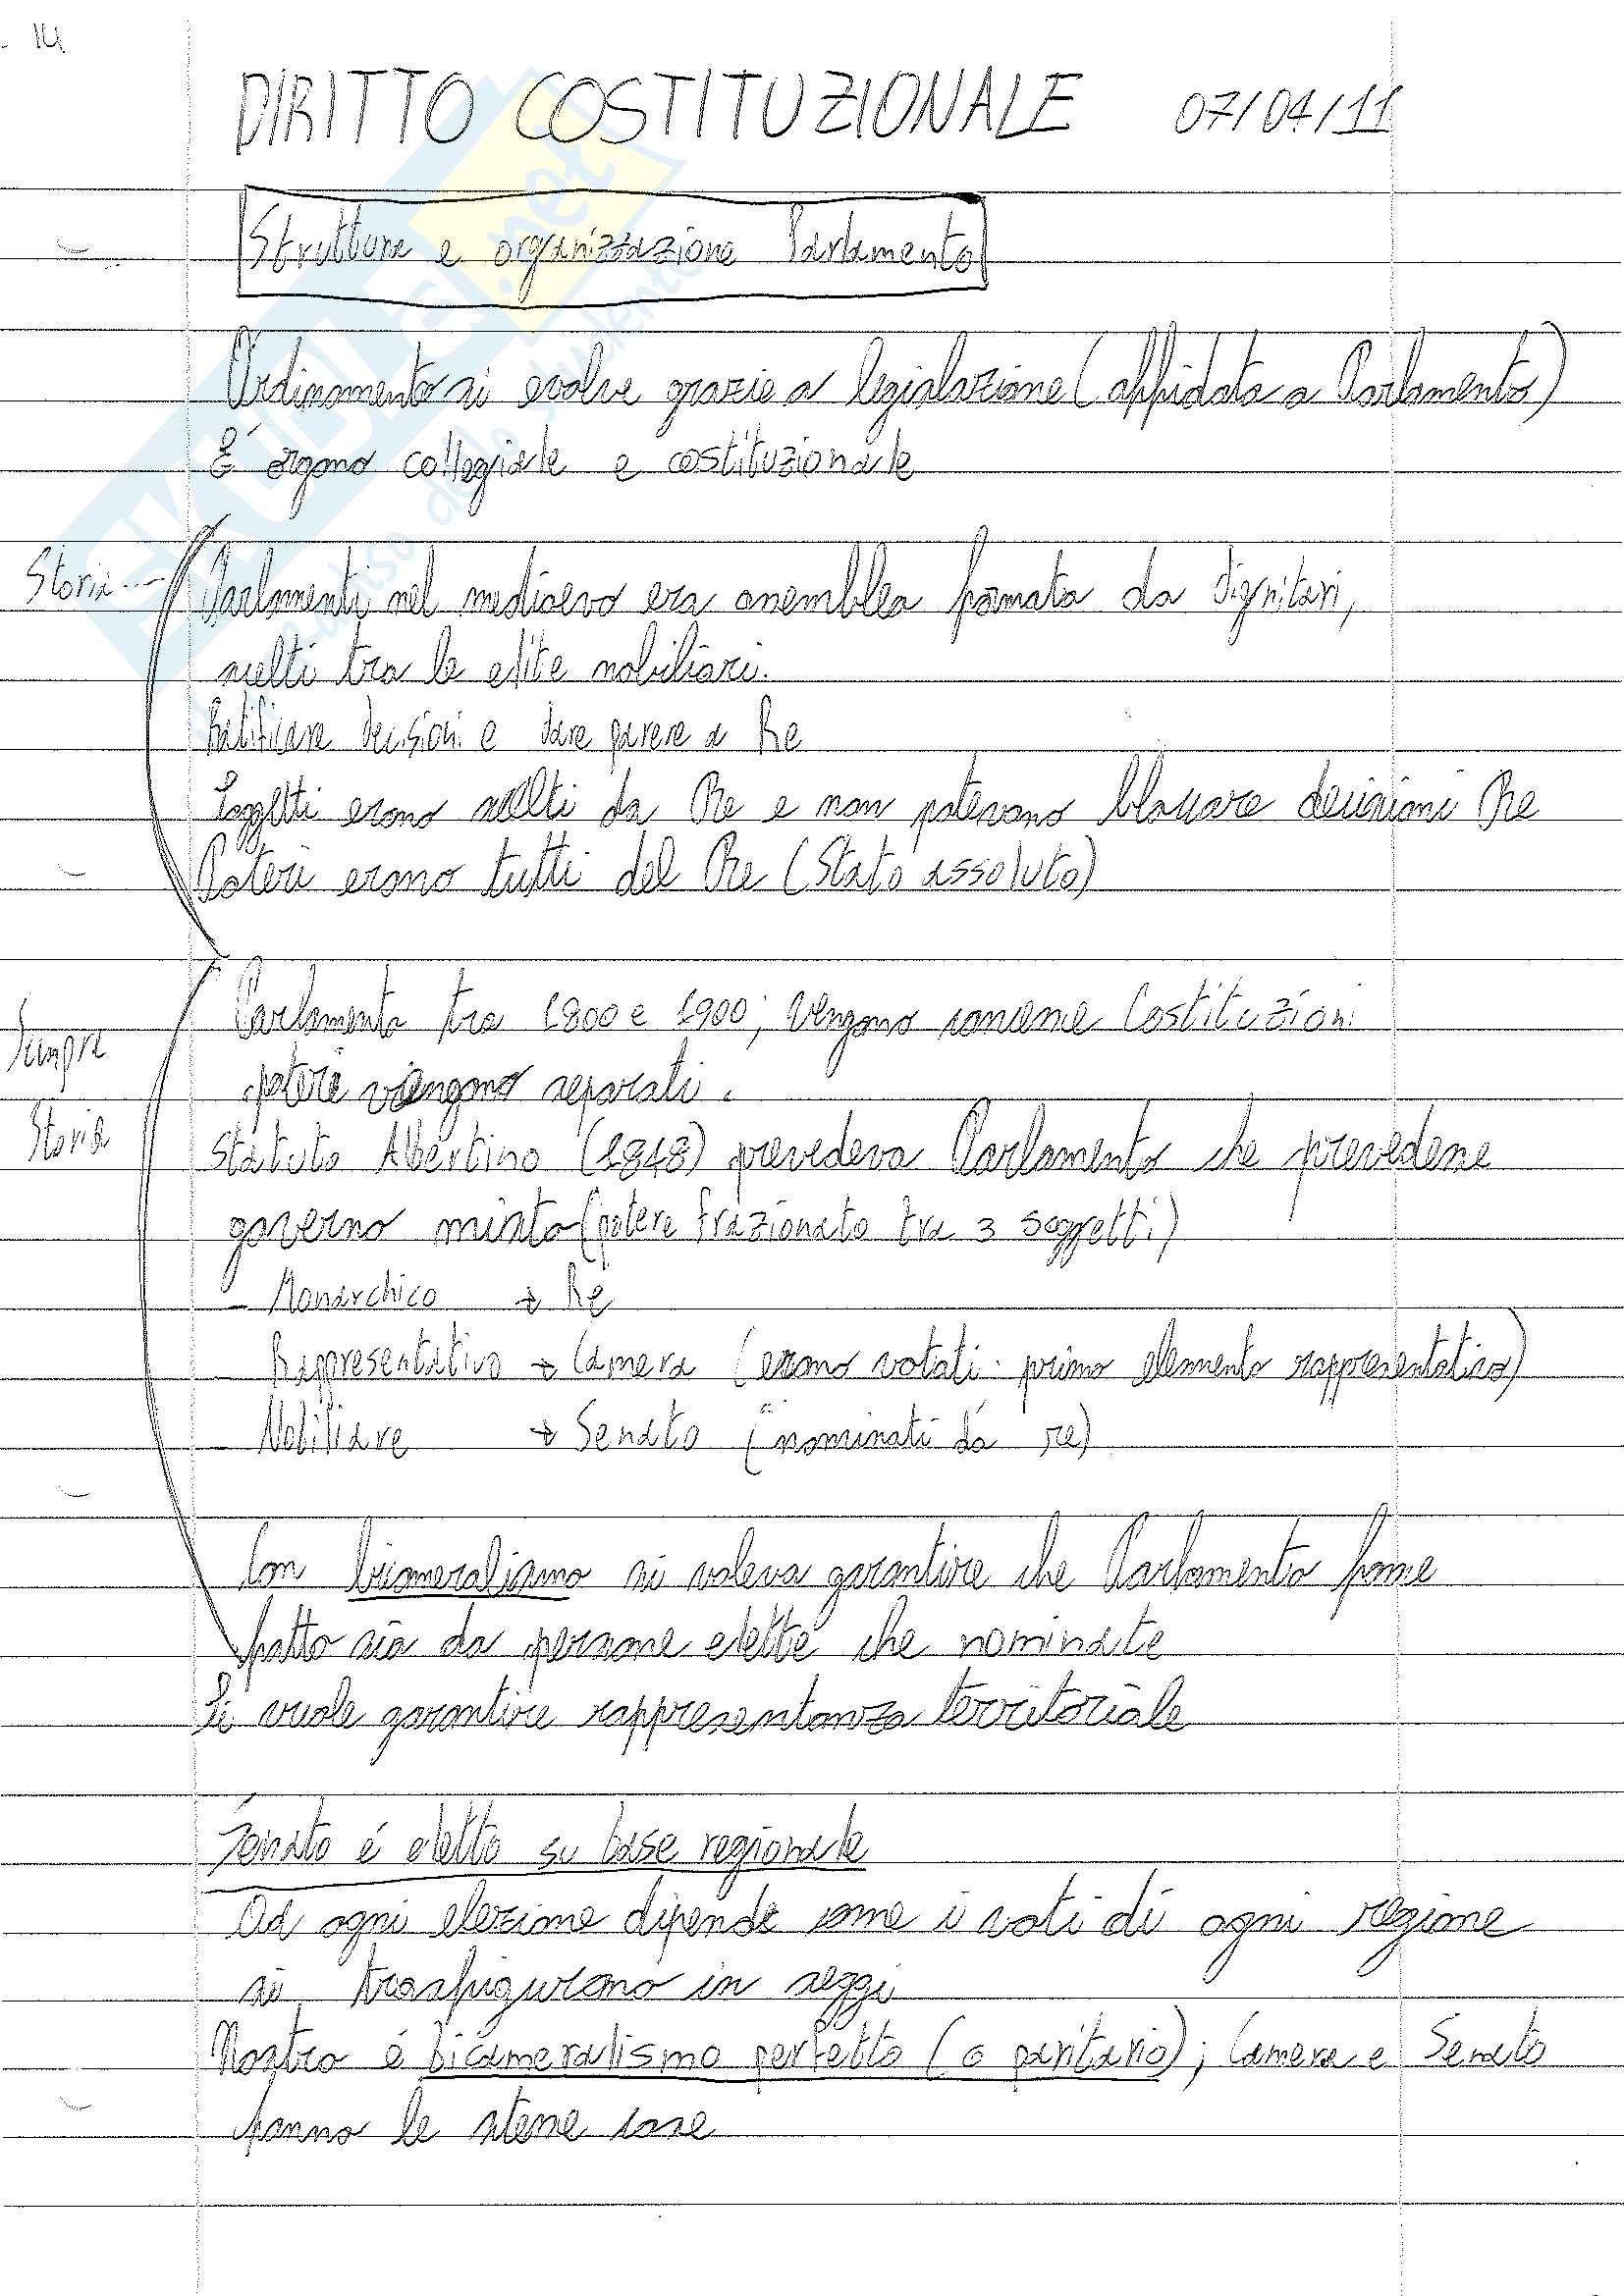 14
DIRITTO COSTITUZIONALE 07/04/11
Struttura e organizzazione Parlamento
Ordinamento si evolve grazie a legislazione (affidata a Parlamento)
É organo collegiale e costituzionale
Storia
Parlamenti nel medioevo era assemblea formata da dignitari,
scelti tra le elite nobiliari.
Ratificare decisioni e dare parere a Re
Soggetti erano scelti da Re e non potevano bloccare decisioni Re
Poteri erano tutti del Re (Stato assoluto)
Parlamento tra 1800 e 1900; Vengono concesse Costituzioni
Sempre
poteri vengono separati.
Storia
Statuto Albertino (1848) prevedeva Parlamento che prevedesse
governo misto (potere frazionato tra 3 soggetti)
- Monarchico → Re
- Rappresentativo → Camera (erano votati. primo elemento rappresentativo)
- Nobiliare → Senato (nominati da re)
Con bicameralismo si voleva garantire che Parlamento fosse
fatto sia da persone elette che nominate
Si vuole garantire rappresentanza territoriale
Senato é eletto su base regionale
Ad ogni elezione dipende come i voti di ogni regione
si trasfigurano in seggi
Nostro é bicameralismo perfetto (o paritario); Camera e Senato
fanno le stesse cose